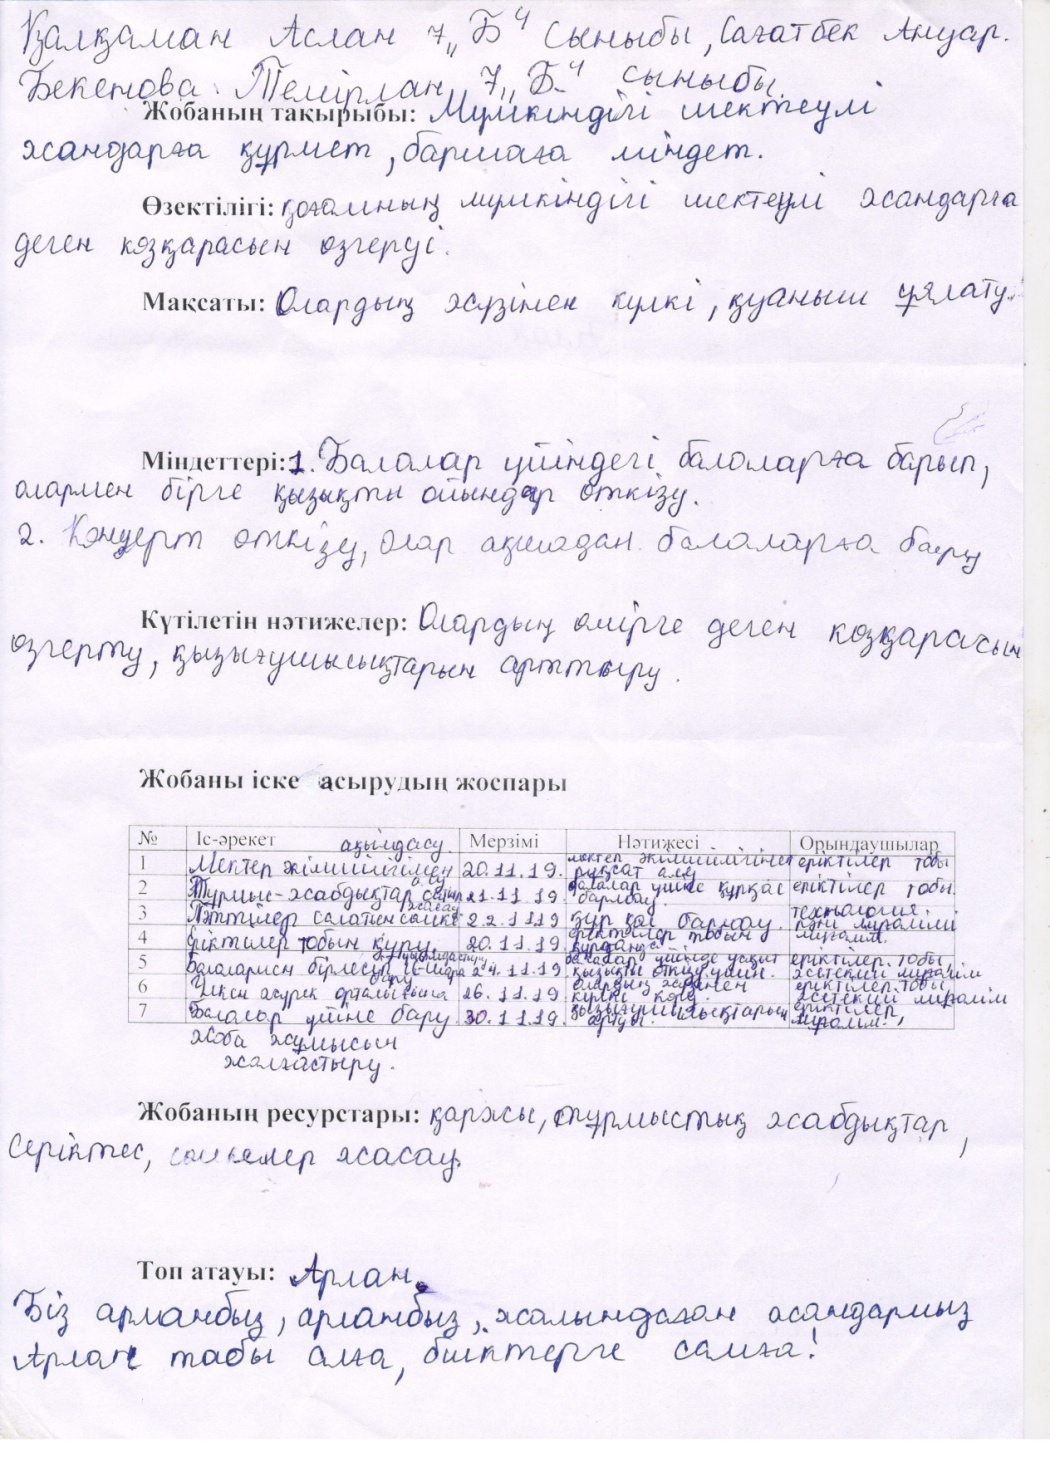 Қалқаман Аслан 7 "Б" сыныбы, Сағатбек Ануар.
Бекенова Темірлан 7 "Б" сыныбы
Жобаның тақырыбы: Мүмкіндігі шектеулі
жандарға құрмет, баршаға міндет.
Өзектілігі: қоғамның мүмкіндігі шектеулі жандарға
деген көзқарасын өзгеруі.
Мақсаты: Олардың жүзінен күлкі, қуаныш ұялату.
Міндеттері: 1. Балалар үйіндегі балоларға барып,
олармен бірге қызықты ойындар өткізу.
2. Концерт өткізу, олар ақшадан балаларға беру
Күтілетін нәтижелер: Олардың өмірге деген көзқарасын
өзгерту, қызығушылықтарын арттыру.
Жобаны іске асырудың жоспары
№ Іс-әрекет Мерзімі Нәтижесі Орындаушылар
1 Мектеп әкімшілігімен ақылдасу. 20.11.19. мектеп әкімшілігінен рұқсат алу еріктілер тобы
2 Тұрмыс-жабдықтар 21.11.19 балалар үйіне құрқас барлау. еріктілер тобы.
3 жасау 22.11.19 барлау. технология пәні мұғалімі
4 Еріктілер тобын құру. 20.11.19 еріктілер тобын құрған еді мұғалім.
5 Балалармен бірлесіп іс-шара ұйымдастыру 24.11.19 балалар үйінде уақыт қызықты өткізу үшін. еріктілер тобы жетекші мұғалім
6 Үлкен жүрек орталығына бару 26.11.19 олардың жүзінен күлкі көру. еріктілер тобы жетекші мұғалім
7 Балалар үйіне бару. 30.11.19. қызығушылықтарын артуы. еріктілер, мұғалім.
жоба жұмысын
жалғастыру.
Жобаның ресурстары: қаржы, тұрмыстық жабдықтар,
серіктес, сөмкелер жасау.
Топ атауы: Арлан.
Біз арланбыз, арланбыз, жалындаған жандармыз
Арлан тобы алға, биіктерге самға!